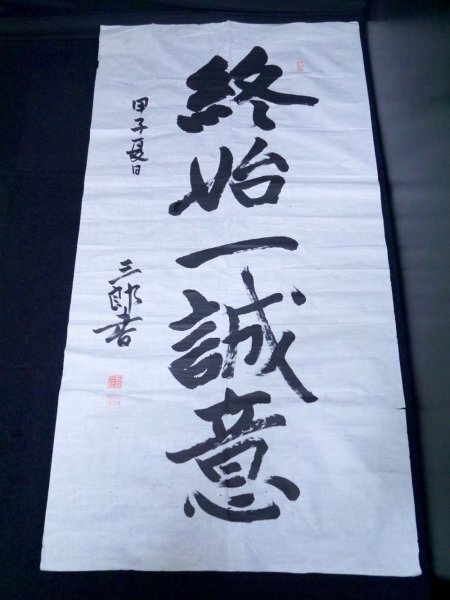 終始一誠意
甲子夏日
三郎書